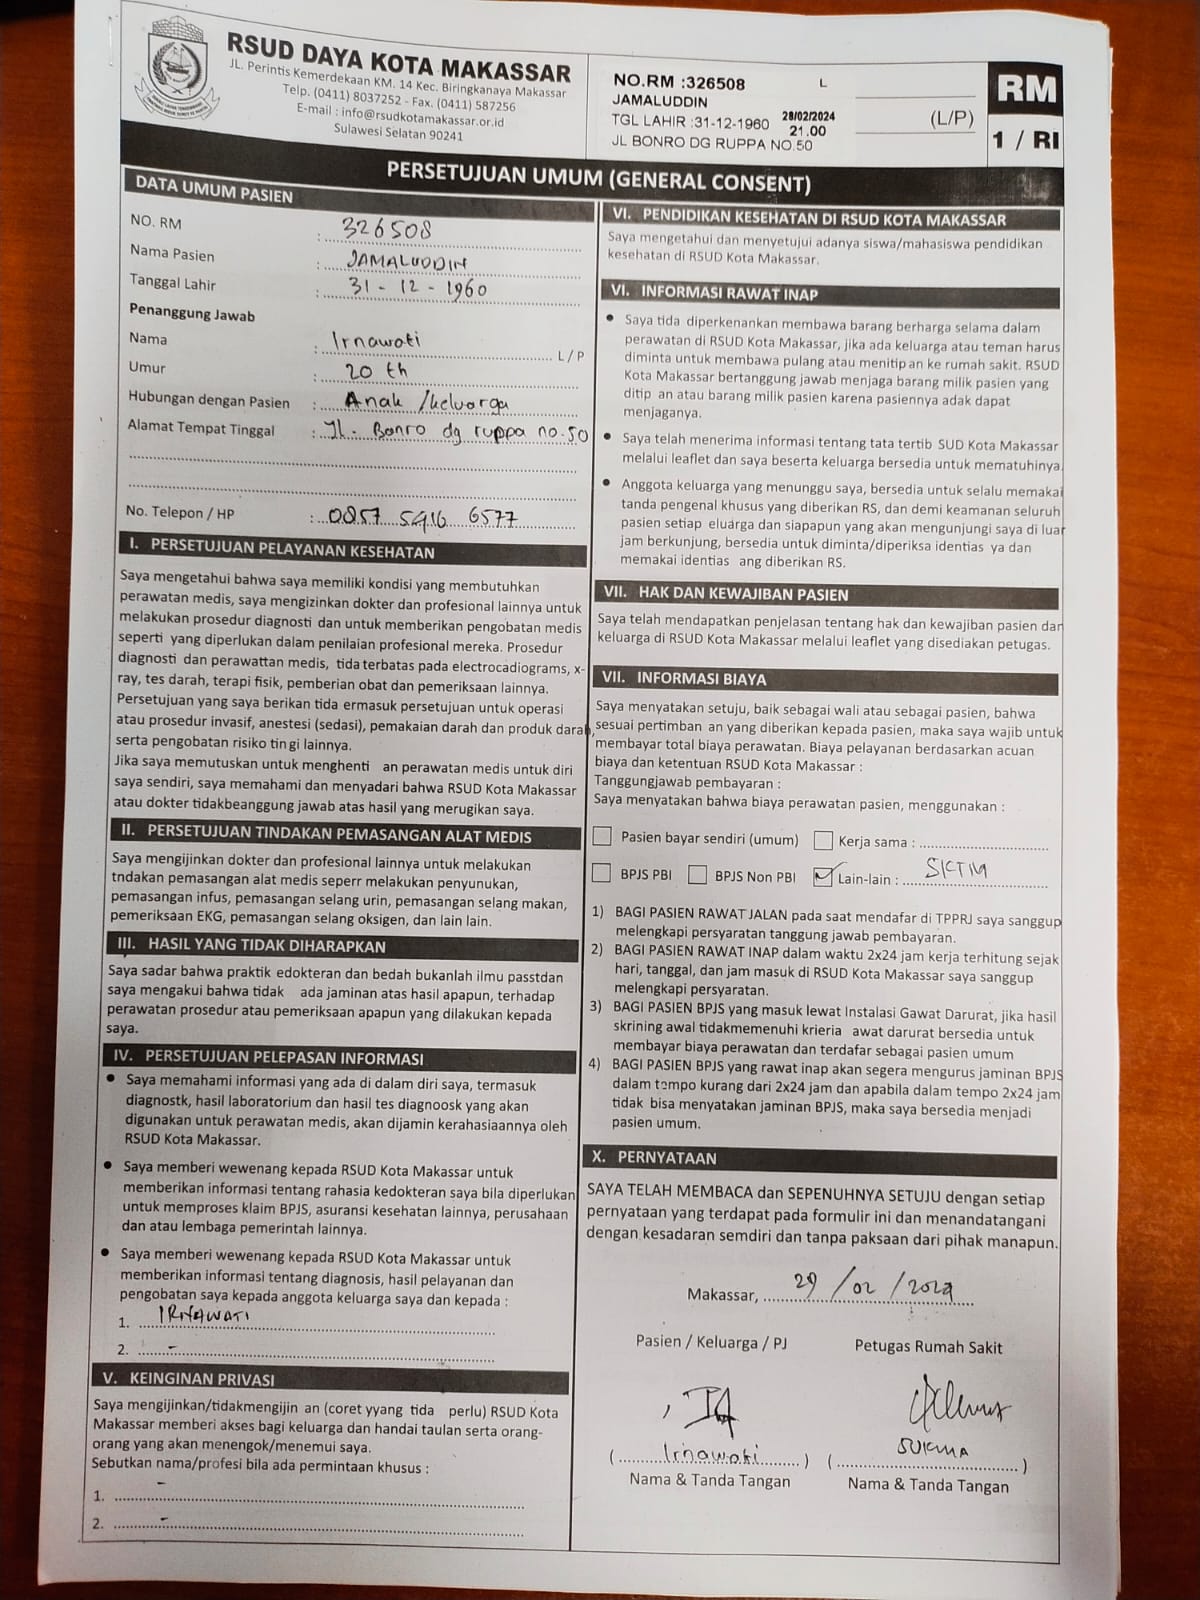 RSUD DAYA KOTA MAKASSAR
JL. Perintis Kemerdekaan KM. 14 Kec. Biringkanaya Makassar
Telp. (0411) 8037252 - Fax. (0411) 587256
E-mail : info@rsudkotamakassar.or.id
Sulawesi Selatan 90241
NO.RM :326508 L
JAMALUDDIN
TGL LAHIR :31-12-1960 28/02/2024
21.00
JL BONRO DG RUPPA NO.50
(L/P)
RM
1 / RI
PERSETUJUAN UMUM (GENERAL CONSENT)
DATA UMUM PASIEN
NO. RM : 326508
Nama Pasien : JAMALUDDIN
Tanggal Lahir : 31 - 12 - 1960
Penanggung Jawab
Nama : Irnawati L / P
Umur : 20 th
Hubungan dengan Pasien : Anak /keluarga
Alamat Tempat Tinggal : Jl. Bonro dg ruppa no.50
No. Telepon / HP : 0857 5416 6577
I. PERSETUJUAN PELAYANAN KESEHATAN
Saya mengetahui bahwa saya memiliki kondisi yang membutuhkan
perawatan medis, saya mengizinkan dokter dan profesional lainnya untuk
melakukan prosedur diagnosti dan untuk memberikan pengobatan medis
seperti yang diperlukan dalam penilaian profesional mereka. Prosedur
diagnosti dan perawattan medis, tida terbatas pada electrocadiograms, x-
ray, tes darah, terapi fisik, pemberian obat dan pemeriksaan lainnya.
Persetujuan yang saya berikan tida ermasuk persetujuan untuk operasi
atau prosedur invasif, anestesi (sedasi), pemakaian darah dan produk darah,
serta pengobatan risiko tin gi lainnya.
Jika saya memutuskan untuk menghenti an perawatan medis untuk diri
saya sendiri, saya memahami dan menyadari bahwa RSUD Kota Makassar
atau dokter tidakbeanggung jawab atas hasil yang merugikan saya.
II. PERSETUJUAN TINDAKAN PEMASANGAN ALAT MEDIS
Saya mengijinkan dokter dan profesional lainnya untuk melakukan
tndakan pemasangan alat medis seperr melakukan penyunukan,
pemasangan infus, pemasangan selang urin, pemasangan selang makan,
pemeriksaan EKG, pemasangan selang oksigen, dan lain lain.
III. HASIL YANG TIDAK DIHARAPKAN
Saya sadar bahwa praktik edokteran dan bedah bukanlah ilmu passtdan
saya mengakui bahwa tidak ada jaminan atas hasil apapun, terhadap
perawatan prosedur atau pemeriksaan apapun yang dilakukan kepada
saya.
IV. PERSETUJUAN PELEPASAN INFORMASI
• Saya memahami informasi yang ada di dalam diri saya, termasuk
diagnostk, hasil laboratorium dan hasil tes diagnoosk yang akan
digunakan untuk perawatan medis, akan dijamin kerahasiaannya oleh
RSUD Kota Makassar.
• Saya memberi wewenang kepada RSUD Kota Makassar untuk
memberikan informasi tentang rahasia kedokteran saya bila diperlukan
untuk memproses klaim BPJS, asuransi kesehatan lainnya, perusahaan
dan atau lembaga pemerintah lainnya.
• Saya memberi wewenang kepada RSUD Kota Makassar untuk
memberikan informasi tentang diagnosis, hasil pelayanan dan
pengobatan saya kepada anggota keluarga saya dan kepada :
1. IRNAWATI
2. -
V. KEINGINAN PRIVASI
Saya mengijinkan/tidakmengijin an (coret yyang tida perlu) RSUD Kota
Makassar memberi akses bagi keluarga dan handai taulan serta orang-
orang yang akan menengok/menemui saya.
Sebutkan nama/profesi bila ada permintaan khusus :
1. -
2. -
VI. PENDIDIKAN KESEHATAN DI RSUD KOTA MAKASSAR
Saya mengetahui dan menyetujui adanya siswa/mahasiswa pendidikan
kesehatan di RSUD Kota Makassar.
VI. INFORMASI RAWAT INAP
• Saya tida diperkenankan membawa barang berharga selama dalam
perawatan di RSUD Kota Makassar, jika ada keluarga atau teman harus
diminta untuk membawa pulang atau menitip an ke rumah sakit. RSUD
Kota Makassar bertanggung jawab menjaga barang milik pasien yang
ditip an atau barang milik pasien karena pasiennya adak dapat
menjaganya.
• Saya telah menerima informasi tentang tata tertib SUD Kota Makassar
melalui leaflet dan saya beserta keluarga bersedia untuk mematuhinya.
• Anggota keluarga yang menunggu saya, bersedia untuk selalu memakai
tanda pengenal khusus yang diberikan RS, dan demi keamanan seluruh
pasien setiap eluarga dan siapapun yang akan mengunjungi saya di luar
jam berkunjung, bersedia untuk diminta/diperiksa identias ya dan
memakai identias ang diberikan RS.
VII. HAK DAN KEWAJIBAN PASIEN
Saya telah mendapatkan penjelasan tentang hak dan kewajiban pasien dan
keluarga di RSUD Kota Makassar melalui leaflet yang disediakan petugas.
VII. INFORMASI BIAYA
Saya menyatakan setuju, baik sebagai wali atau sebagai pasien, bahwa
sesuai pertimban an yang diberikan kepada pasien, maka saya wajib untuk
membayar total biaya perawatan. Biaya pelayanan berdasarkan acuan
biaya dan ketentuan RSUD Kota Makassar :
Tanggungjawab pembayaran :
Saya menyatakan bahwa biaya perawatan pasien, menggunakan :
Pasien bayar sendiri (umum) Kerja sama :
BPJS PBI BPJS Non PBI Lain-lain : SKTM
1) BAGI PASIEN RAWAT JALAN pada saat mendafar di TPPRJ saya sanggup
melengkapi persyaratan tanggung jawab pembayaran.
2) BAGI PASIEN RAWAT INAP dalam waktu 2x24 jam kerja terhitung sejak
hari, tanggal, dan jam masuk di RSUD Kota Makassar saya sanggup
melengkapi persyaratan.
3) BAGI PASIEN BPJS yang masuk lewat Instalasi Gawat Darurat, jika hasil
skrining awal tidakmemenuhi krieria awat darurat bersedia untuk
membayar biaya perawatan dan terdafar sebagai pasien umum
4) BAGI PASIEN BPJS yang rawat inap akan segera mengurus jaminan BPJS
dalam tempo kurang dari 2x24 jam dan apabila dalam tempo 2x24 jam
tidak bisa menyatakan jaminan BPJS, maka saya bersedia menjadi
pasien umum.
X. PERNYATAAN
SAYA TELAH MEMBACA dan SEPENUHNYA SETUJU dengan setiap
pernyataan yang terdapat pada formulir ini dan menandatangani
dengan kesadaran semdiri dan tanpa paksaan dari pihak manapun.
Makassar, 29 / 02 / 2024
Pasien / Keluarga / PJ Petugas Rumah Sakit
( Irnawati ) ( SUKMA )
Nama & Tanda Tangan Nama & Tanda Tangan